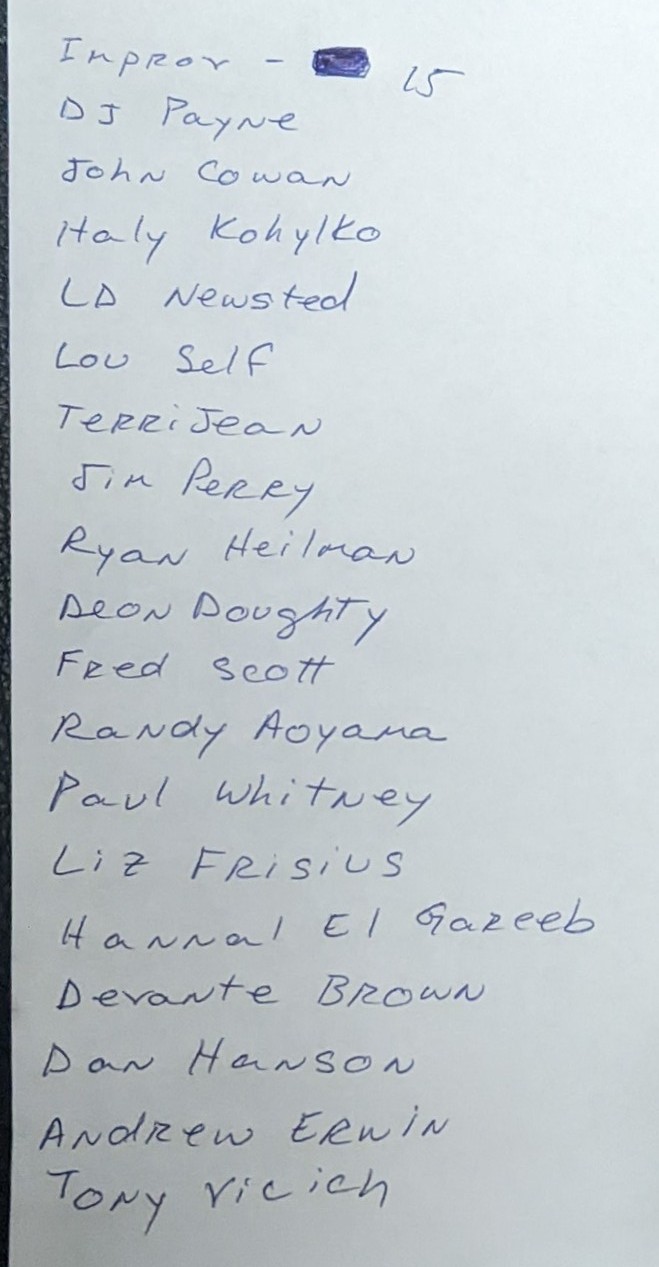 Improv - 15
DJ Payne
John Cowan
Italy Kohylko
LD Newsted
Lou Self
TerriJean
Jim Perry
Ryan Heilman
Deon Doughty
Fred Scott
Randy Aoyama
Paul Whitney
Liz Frisius
Hannal El Gareeb
Devante Brown
Dan Hanson
Andrew Erwin
Tony Vicich